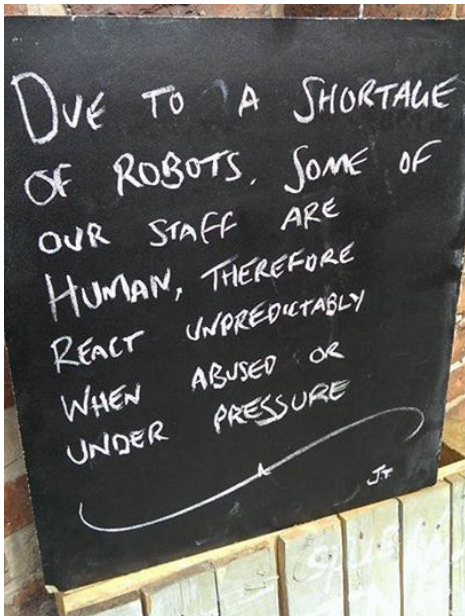 DUE TO A SHORTAGE
OF ROBOTS, SOME OF
OUR STAFF ARE
HUMAN, THEREFORE
REACT UNPREDICTABLY
WHEN ABUSED OR
UNDER PRESSURE
J.T